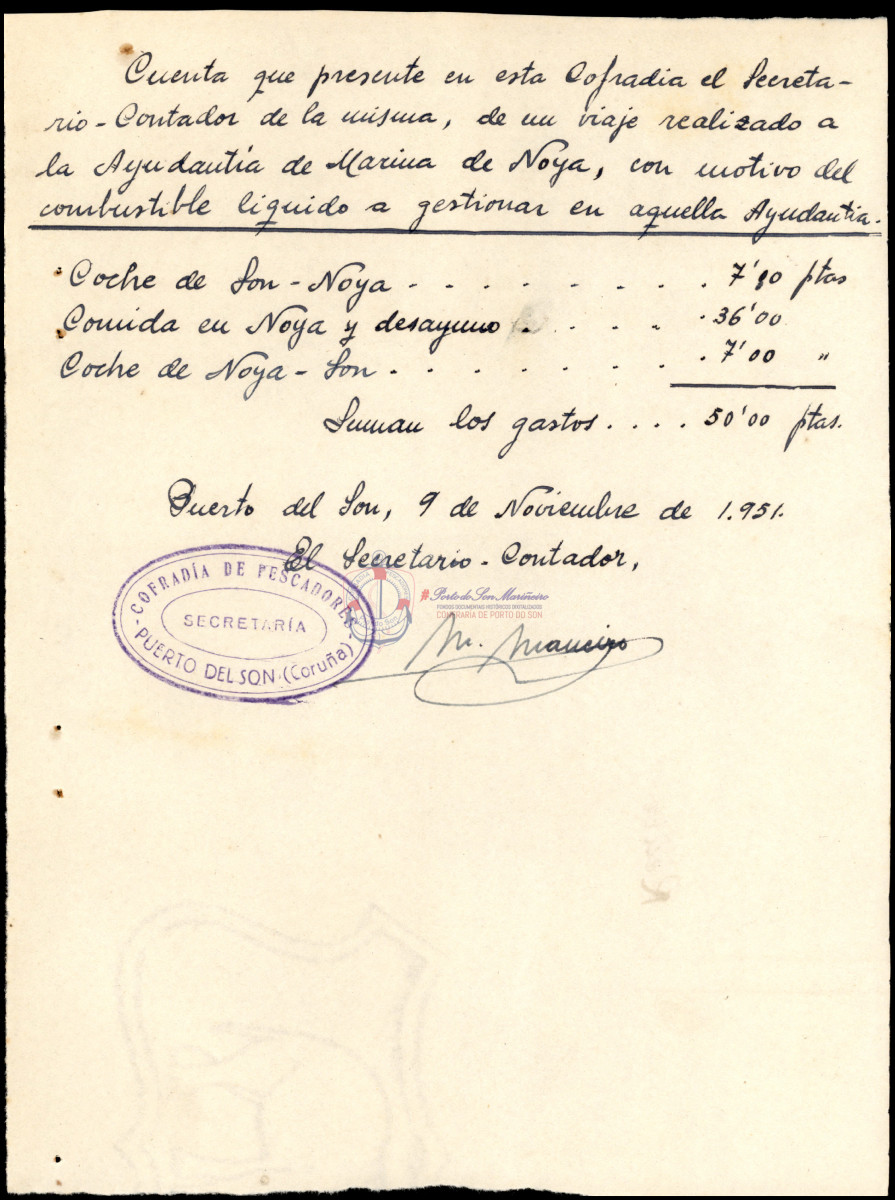 Cuenta que presente en esta Cofradia el Secreta-
rio-Contador de la misma, de un viaje realizado a
la Ayudantía de Marina de Noya, con motivo del
combustible liquido a gestionar en aquella Ayudantia.
Coche de Son-Noya - - - - - - - - 7'00 ptas
Comida en Noya y desayuno . . . „ . 36'00
Coche de Noya-Son - - - - - - - 7'00 „
Suman los gastos . . . . 50'00 ptas.
Puerto del Son, 9 de Noviembre de 1.951.
El Secretario-Contador,
-COFRADÍA DE PESCADORES-
SECRETARÍA
PUERTO DEL SON.(Coruña)
#Porto do Son Mariñeiro
FONDOS DOCUMENTAIS HISTÓRICOS DIXITALIZADOS
CONFRARÍA DE PORTO DO SON
M. Maneiro